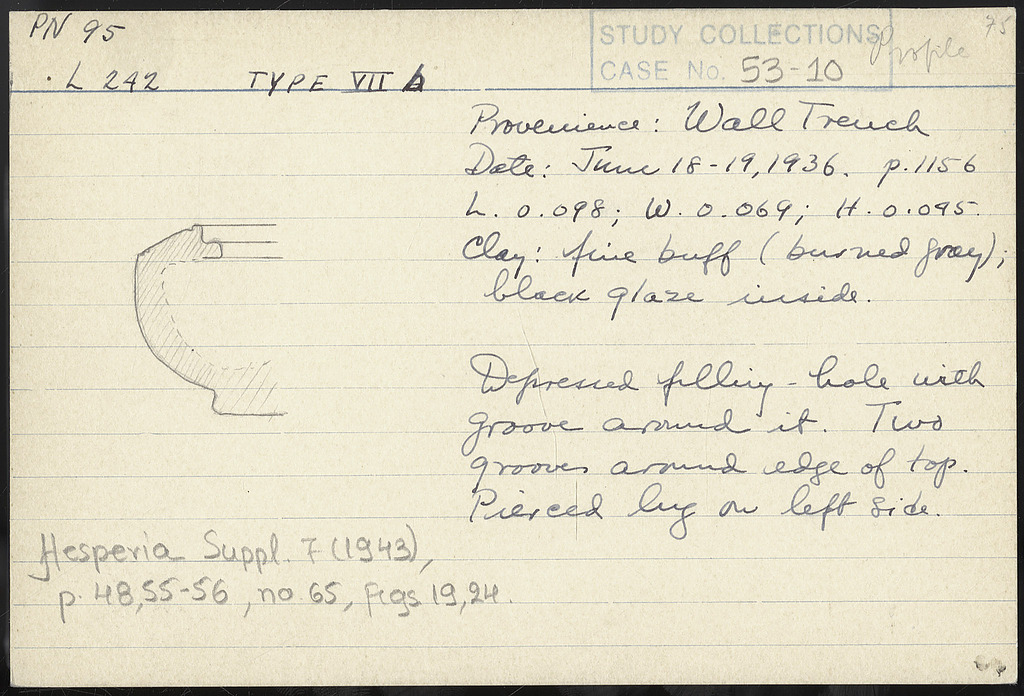 PN 95
75
STUDY COLLECTIONS
CASE No. 53-10
Profile
L 242 TYPE VII b
Provenience: Wall Trench
Date: June 18-19, 1936. p.1156
L. 0.098; W. 0.069; H. 0.095.
Clay: fine buff (burned gray);
black glaze inside.
Depressed filling-hole with
groove around it. Two
grooves around edge of top.
Pierced lug on left side.
Hesperia Suppl. 7 (1943),
p. 48,55-56, no 65, figs 19,24.